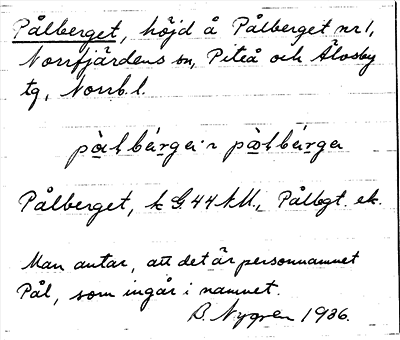 Pålberget, höjd å Pålberget nr 1,
Norrfjärdens sn, Piteå och Älvsby
tg, Norrb. l.
Pålberget, k G. 44 k.M., Pålbgt. ek.
Man antar, att det är personnamnet
Pål, som ingår i namnet.
B. Nygren 1936.